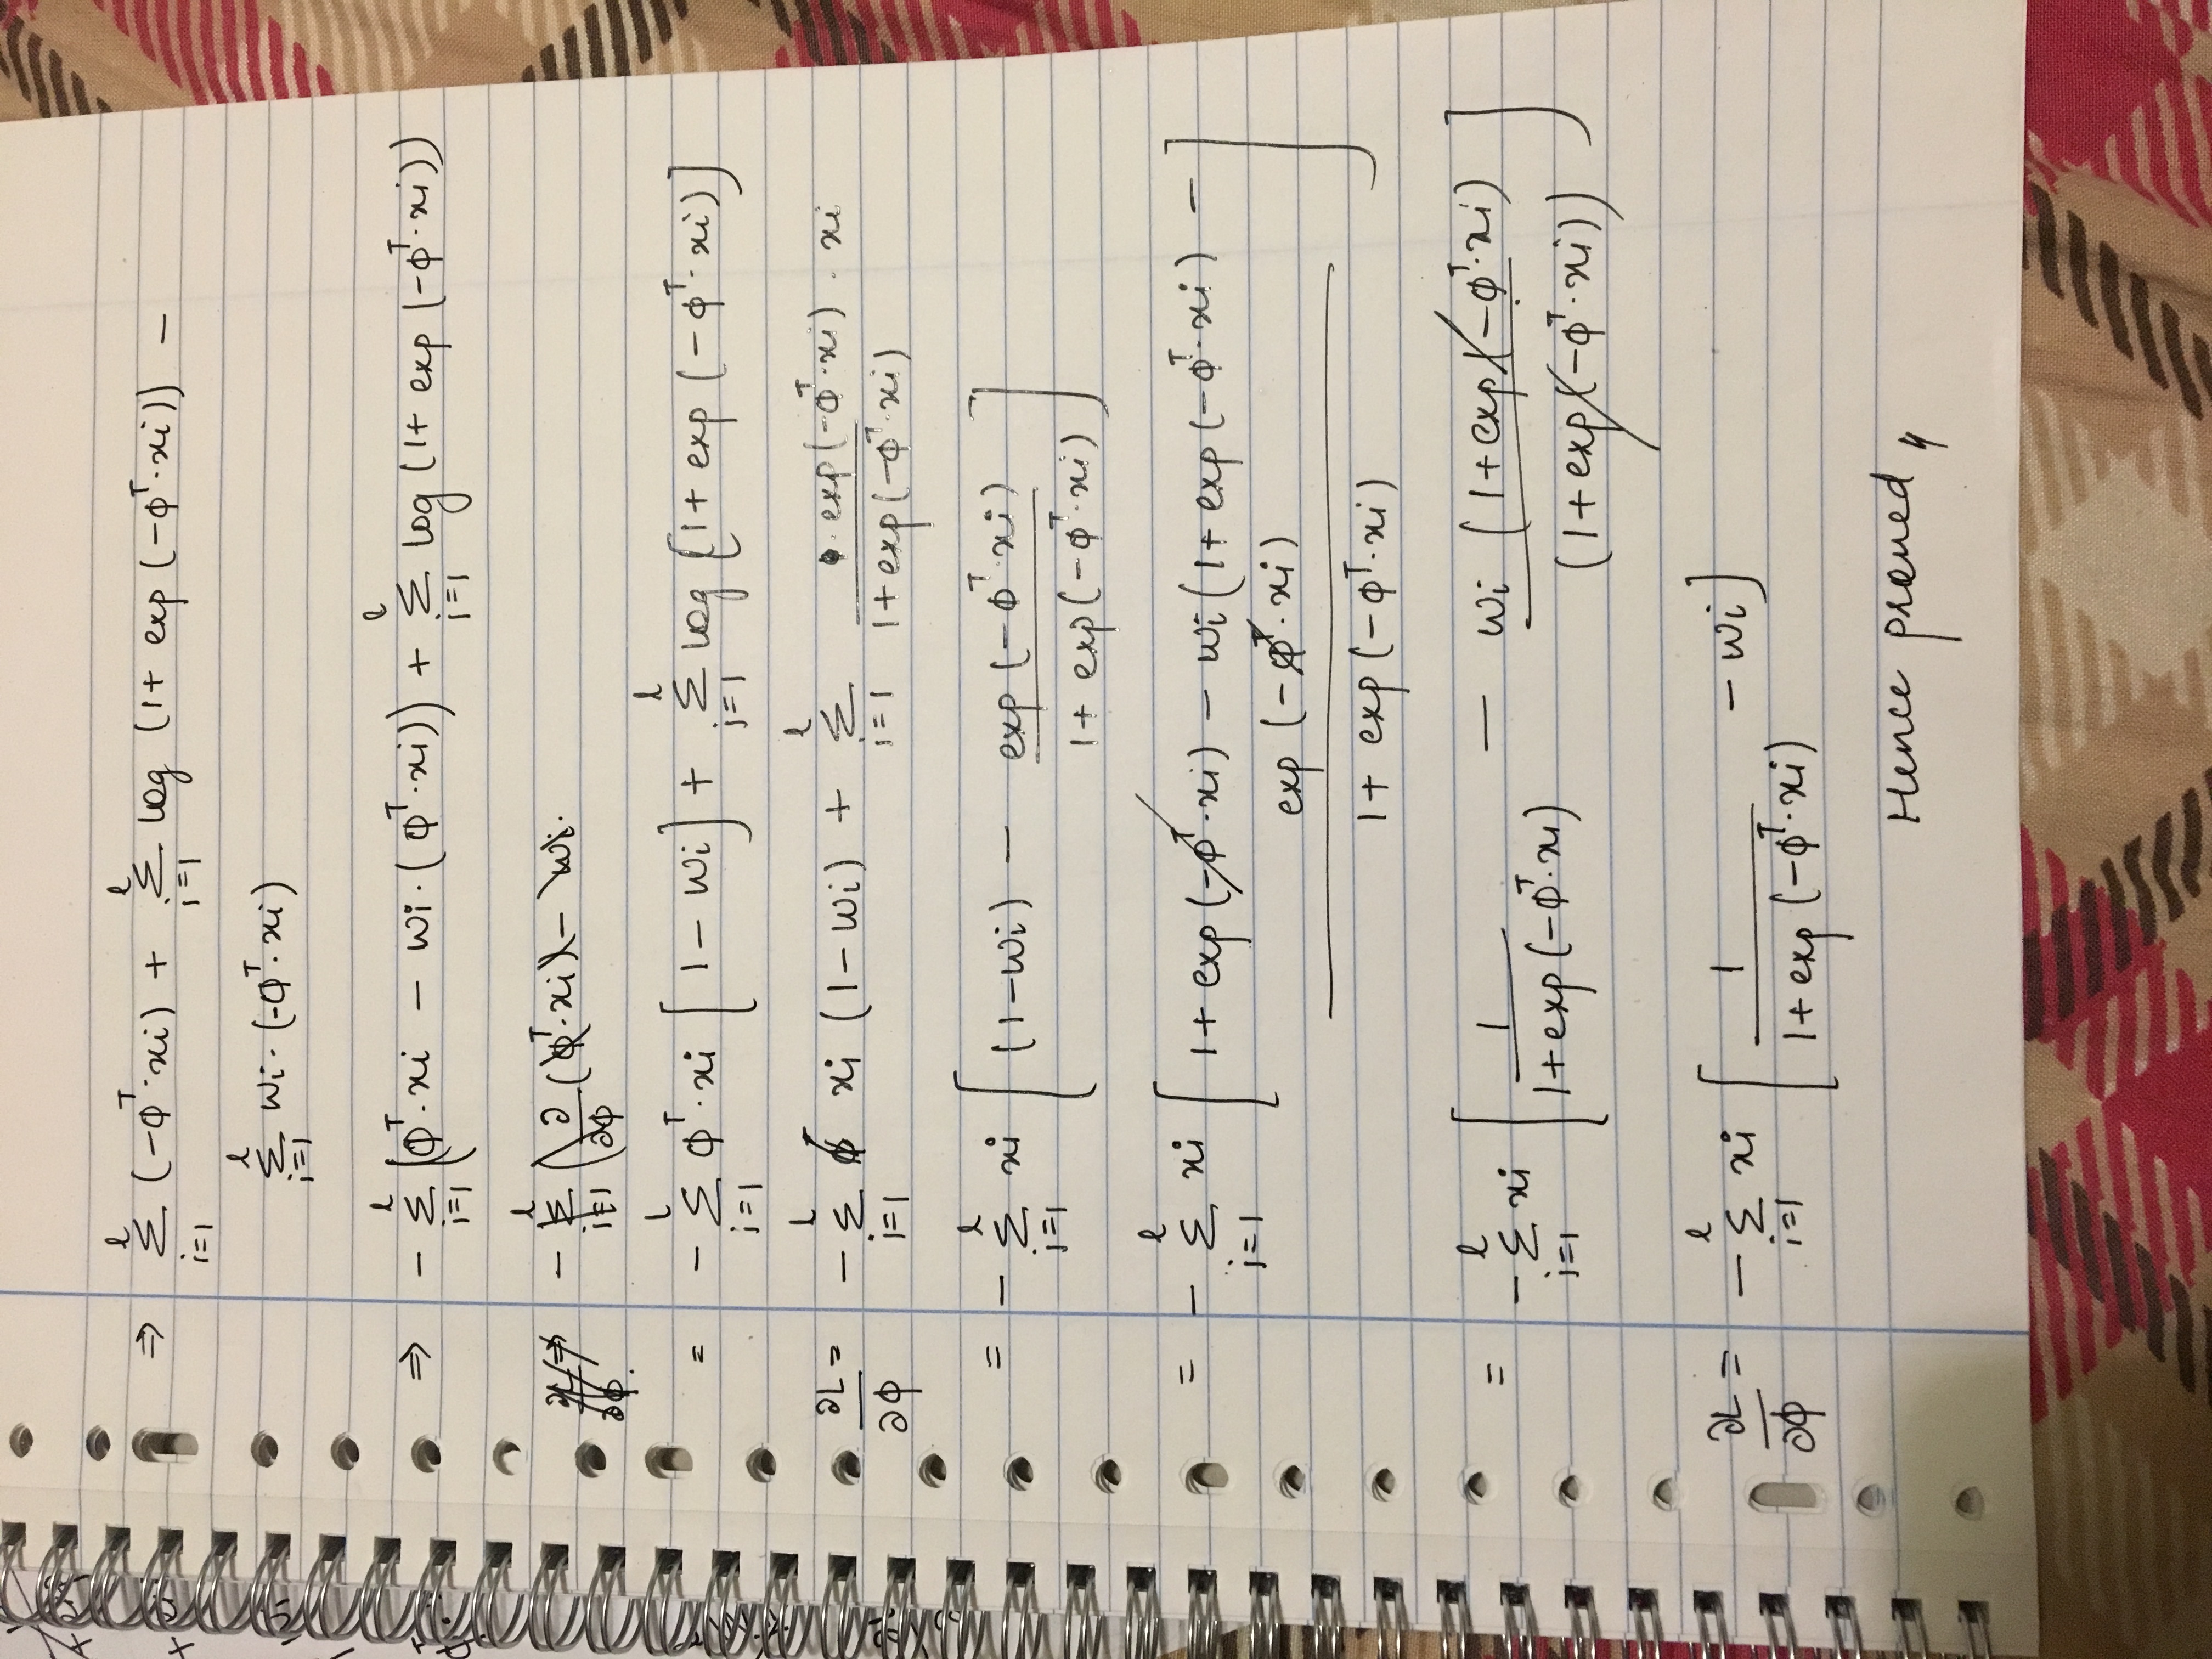 ⇒ Σ_{i=1}^{l} (-φ^T·xi) + Σ_{i=1}^{l} log (1+ exp (-φ^T·xi)) -
Σ_{i=1}^{l} wi·(-φ^T·xi)
⇒ - Σ_{i=1}^{l} (φ^T·xi - wi·(φ^T·xi)) + Σ_{i=1}^{l} log (1+ exp (-φ^T·xi))
∂L/∂φ ⇒ - Σ_{i=1}^{l} (∂/∂φ (φ^T·xi) - wi·
= - Σ_{i=1}^{l} φ^T·xi [1 - wi] + Σ_{i=1}^{l} log [1+ exp (-φ^T·xi)]
∂L/∂φ = - Σ_{i=1}^{l} xi (1-wi) + Σ_{i=1}^{l} exp(-φ^T·xi)/1+exp(-φ^T·xi) · xi
= - Σ_{i=1}^{l} xi [(1-wi) - exp(-φ^T·xi)/1+ exp(-φ^T·xi)]
= - Σ_{i=1}^{l} xi [1+ exp(-φ^T·xi) - wi(1+exp(-φ^T·xi) -
exp (-φ^T·xi)
1+ exp(-φ^T·xi)]
= - Σ_{i=1}^{l} xi [1/1+exp(-φ^T·xi) - wi (1+exp(-φ^T·xi)/(1+exp(-φ^T·xi))]
∂L/∂φ = - Σ_{i=1}^{l} xi [1/1+exp(-φ^T·xi) - wi]
Hence proved,,